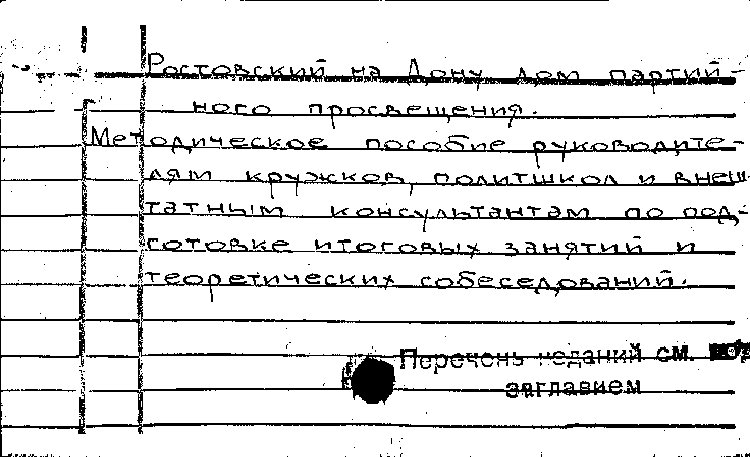 Ростовский на Дону дом партий-
ного просвещения.
Методическое пособие руководите-
лям кружков, политшкол и внеш-
татным консультантам по под-
готовке итоговых занятий и
теоретических собеседований.
Перечень изданий см. под
заглавием